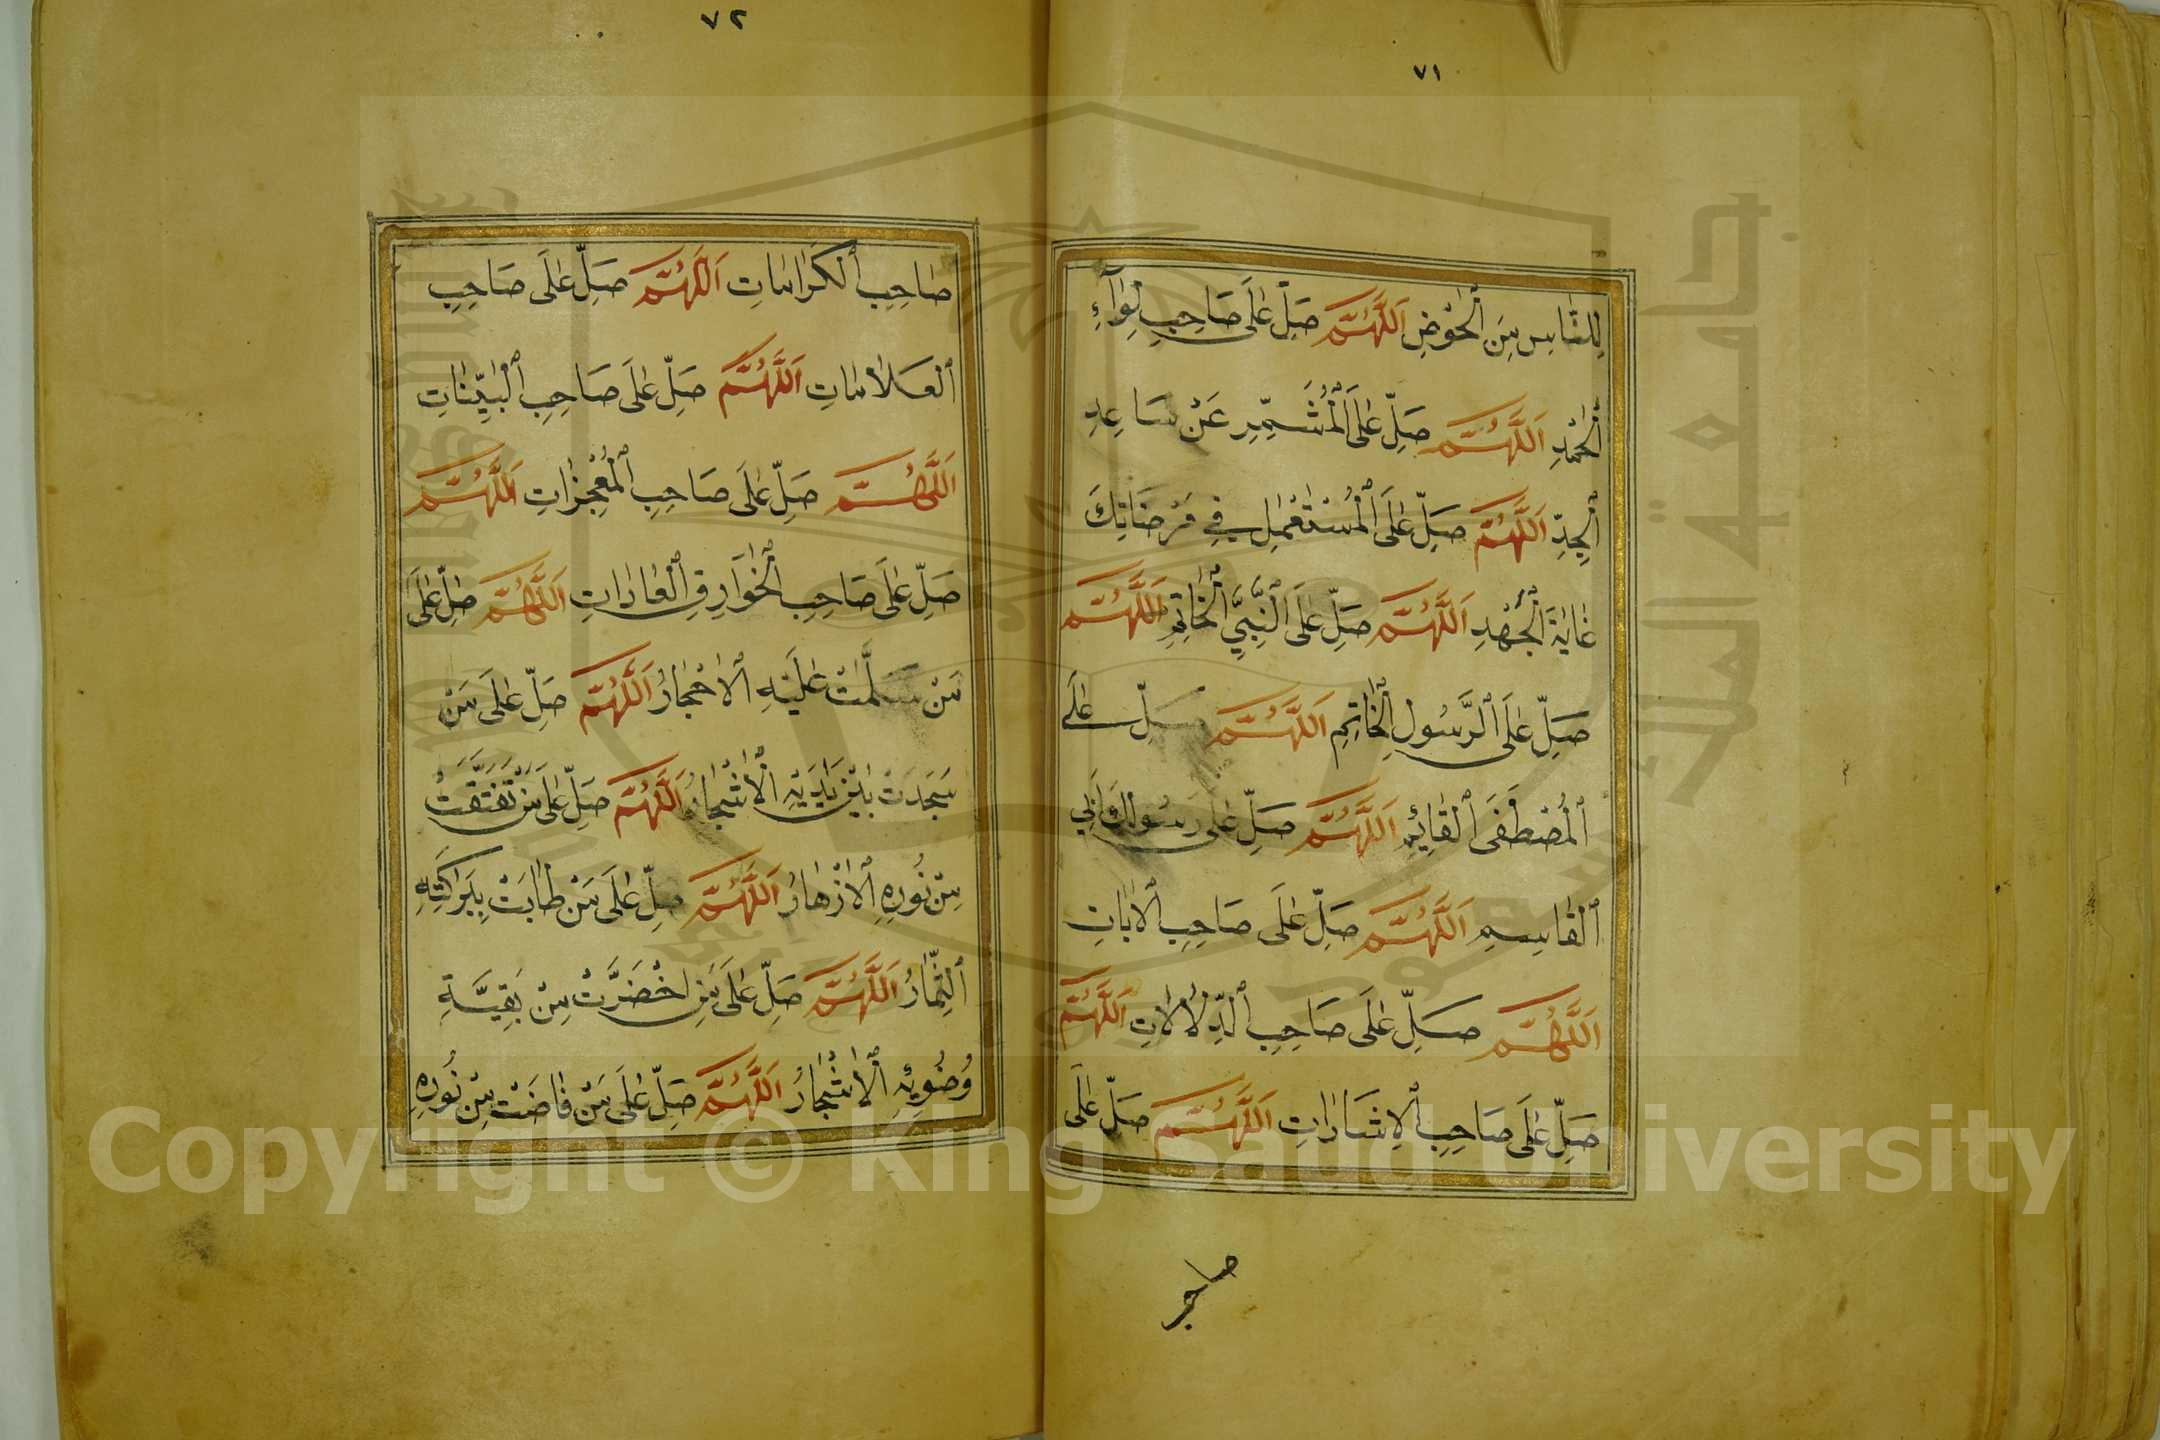 ٧١
لِلنَّاسِ مِنَ الْحَوْضِ اَللّٰهُمَّ صَلِّ عَلَى صَاحِبِ لِوَآءِ
الْحَمْدِ اَللّٰهُمَّ صَلِّ عَلَى الْمُشَمِّرِ عَنْ سَاعِدِ
الْجِدِّ اَللّٰهُمَّ صَلِّ عَلَى الْمُسْتَعْمِلِ فِي مَرْضَاتِكَ
غَايَةَ الْجُهْدِ اَللّٰهُمَّ صَلِّ عَلَى النَّبِيِّ الْخَاتِمِ اَللّٰهُمَّ
صَلِّ عَلَى الرَّسُولِ الْخَاتِمِ اَللّٰهُمَّ صَلِّ عَلَى
الْمُصْطَفَى الْقَائِمِ اَللّٰهُمَّ صَلِّ عَلَى رَسُولِكَ أَبِي
الْقَاسِمِ اَللّٰهُمَّ صَلِّ عَلَى صَاحِبِ الْاٰيَاتِ
اَللّٰهُمَّ صَلِّ عَلَى صَاحِبِ الدِّلَالَاتِ اَللّٰهُمَّ
صَلِّ عَلَى صَاحِبِ الْاِشَارَاتِ اَللّٰهُمَّ صَلِّ عَلَى
٧٢
صَاحِبِ الْكَرَامَاتِ اَللّٰهُمَّ صَلِّ عَلَى صَاحِبِ
الْعَلَامَاتِ اَللّٰهُمَّ صَلِّ عَلَى صَاحِبِ الْبَيِّنَاتِ
اَللّٰهُمَّ صَلِّ عَلَى صَاحِبِ الْمُعْجِزَاتِ اَللّٰهُمَّ
صَلِّ عَلَى صَاحِبِ الْخَوَارِقِ الْعَادَاتِ اَللّٰهُمَّ صَلِّ عَلَى
مَنْ سَلَّمَتْ عَلَيْهِ الْاَحْجَارُ اَللّٰهُمَّ صَلِّ عَلَى مَنْ
سَجَدَتْ بَيْنَ يَدَيْهِ الْاَشْجَارُ اَللّٰهُمَّ صَلِّ عَلَى مَنْ تَفَتَّقَتْ
مِنْ نُورِهِ الْاَزْهَارُ اَللّٰهُمَّ صَلِّ عَلَى مَنْ طَابَتْ بِبَرَكَتِهِ
الثِّمَارُ اَللّٰهُمَّ صَلِّ عَلَى مَنِ اخْضَرَّتْ مِنْ بَقِيَّةِ
وُضُوئِهِ الْاَشْجَارُ اَللّٰهُمَّ صَلِّ عَلَى مَنْ فَاضَتْ مِنْ نُورِهِ
Copyright © King Saud University